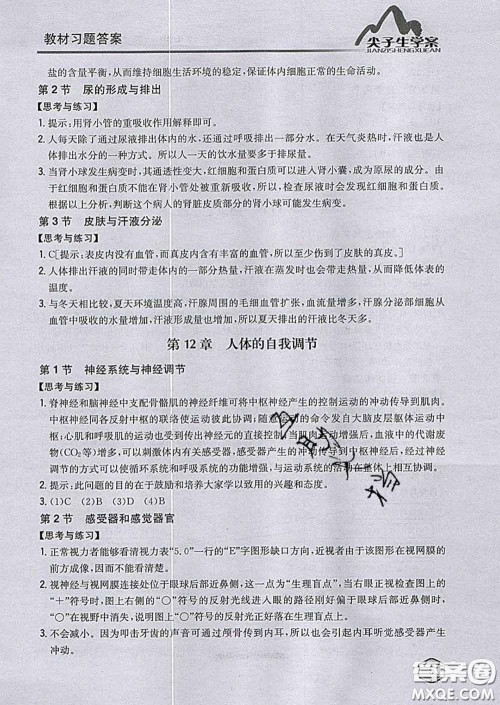 教材习题答案
尖子生学案
JIANZISHENGXUEAN
盐的含量平衡,从而维持细胞生活环境的稳定,保证体内细胞正常的生命活动。
第2节 尿的形成与排出
【思考与练习】
1. 提示:用肾小管的重吸收作用解释即可。
2. 人每天除了通过尿液排出体内的水,还通过呼吸排出一部分水。在天气炎热时,汗液也是人体排出水分的一种方式。所以人一天的饮水量要多于排尿量。
3. 当肾小球发生病变时,其通透性变大,使得红细胞和蛋白质进入肾小囊,成为原尿的成分。由于红细胞和蛋白质不能在肾小管处被重新吸收,所以,检查尿液时会发现红细胞和蛋白质。根据以上分析,判断这个病人的肾脏皮质部分的肾小球可能发生病变。
第3节 皮肤与汗液分泌
【思考与练习】
1. C[提示:表皮内没有血管,而真皮内含有丰富的血管,所以至少伤到了皮肤的真皮。]
2. 人体排出汗液的同时带走体内的一部分热量,汗液在蒸发时也会带走热量,从而降低体表的温度。
3. 与冬天相比较,夏天环境温度高,汗腺周围的毛细血管扩张,血流量增多,汗腺分泌部细胞从血管中吸收的水量增多,汗液形成量也增多,所以夏天排出的汗液比冬天多。
第12章 人体的自我调节
第1节 神经系统与神经调节
【思考与练习】
1. 脊神经和脑神经中支配骨骼肌的神经纤维可将中枢神经产生的控制运动的冲动传导到肌肉。同时各相关中枢与反射中枢的联络使运动彼此协调;随意运动的命令发自大脑皮层躯体运动中枢;心肌和呼吸肌的运动也受到传出神经元的直接控制,当肌肉运动增强后,血液中的代谢废物(CO₂等)增多,可以刺激体内有关感受器,感受器产生的冲动传导到中枢神经后,经过神经调节的方式可以使循环系统和呼吸系统的功能增强,与运动系统的活动在整体上相互协调。
2. 提示:此问题的目的在于鼓励和培养大家学以致用的兴趣和态度。
3. (1)C (2)B (3)D (4)A
第2节 感受器和感觉器官
【思考与练习】
1. 正常视力者能够看清视力表“5.0”一行的“E”字图形缺口方向,近视者由于该图形在视网膜的前方成像,因而不能看清。
2. 视神经与视网膜连接处位于眼球后部近鼻侧,这一点为“生理盲点”,当右眼注视图上左侧的“+”符号时,图上右侧的“○”符号的反射光线进入眼的路径刚好偏于眼球后部近鼻侧,“○”在视野中消失,说明“○”符号的反射光正好落在生理盲点上。
3. 不会减小。因为叩击牙齿的声音可通过颅骨传到内耳,所以也会引起内耳听觉感受器产生冲动。
答案圈
MXQE.COM